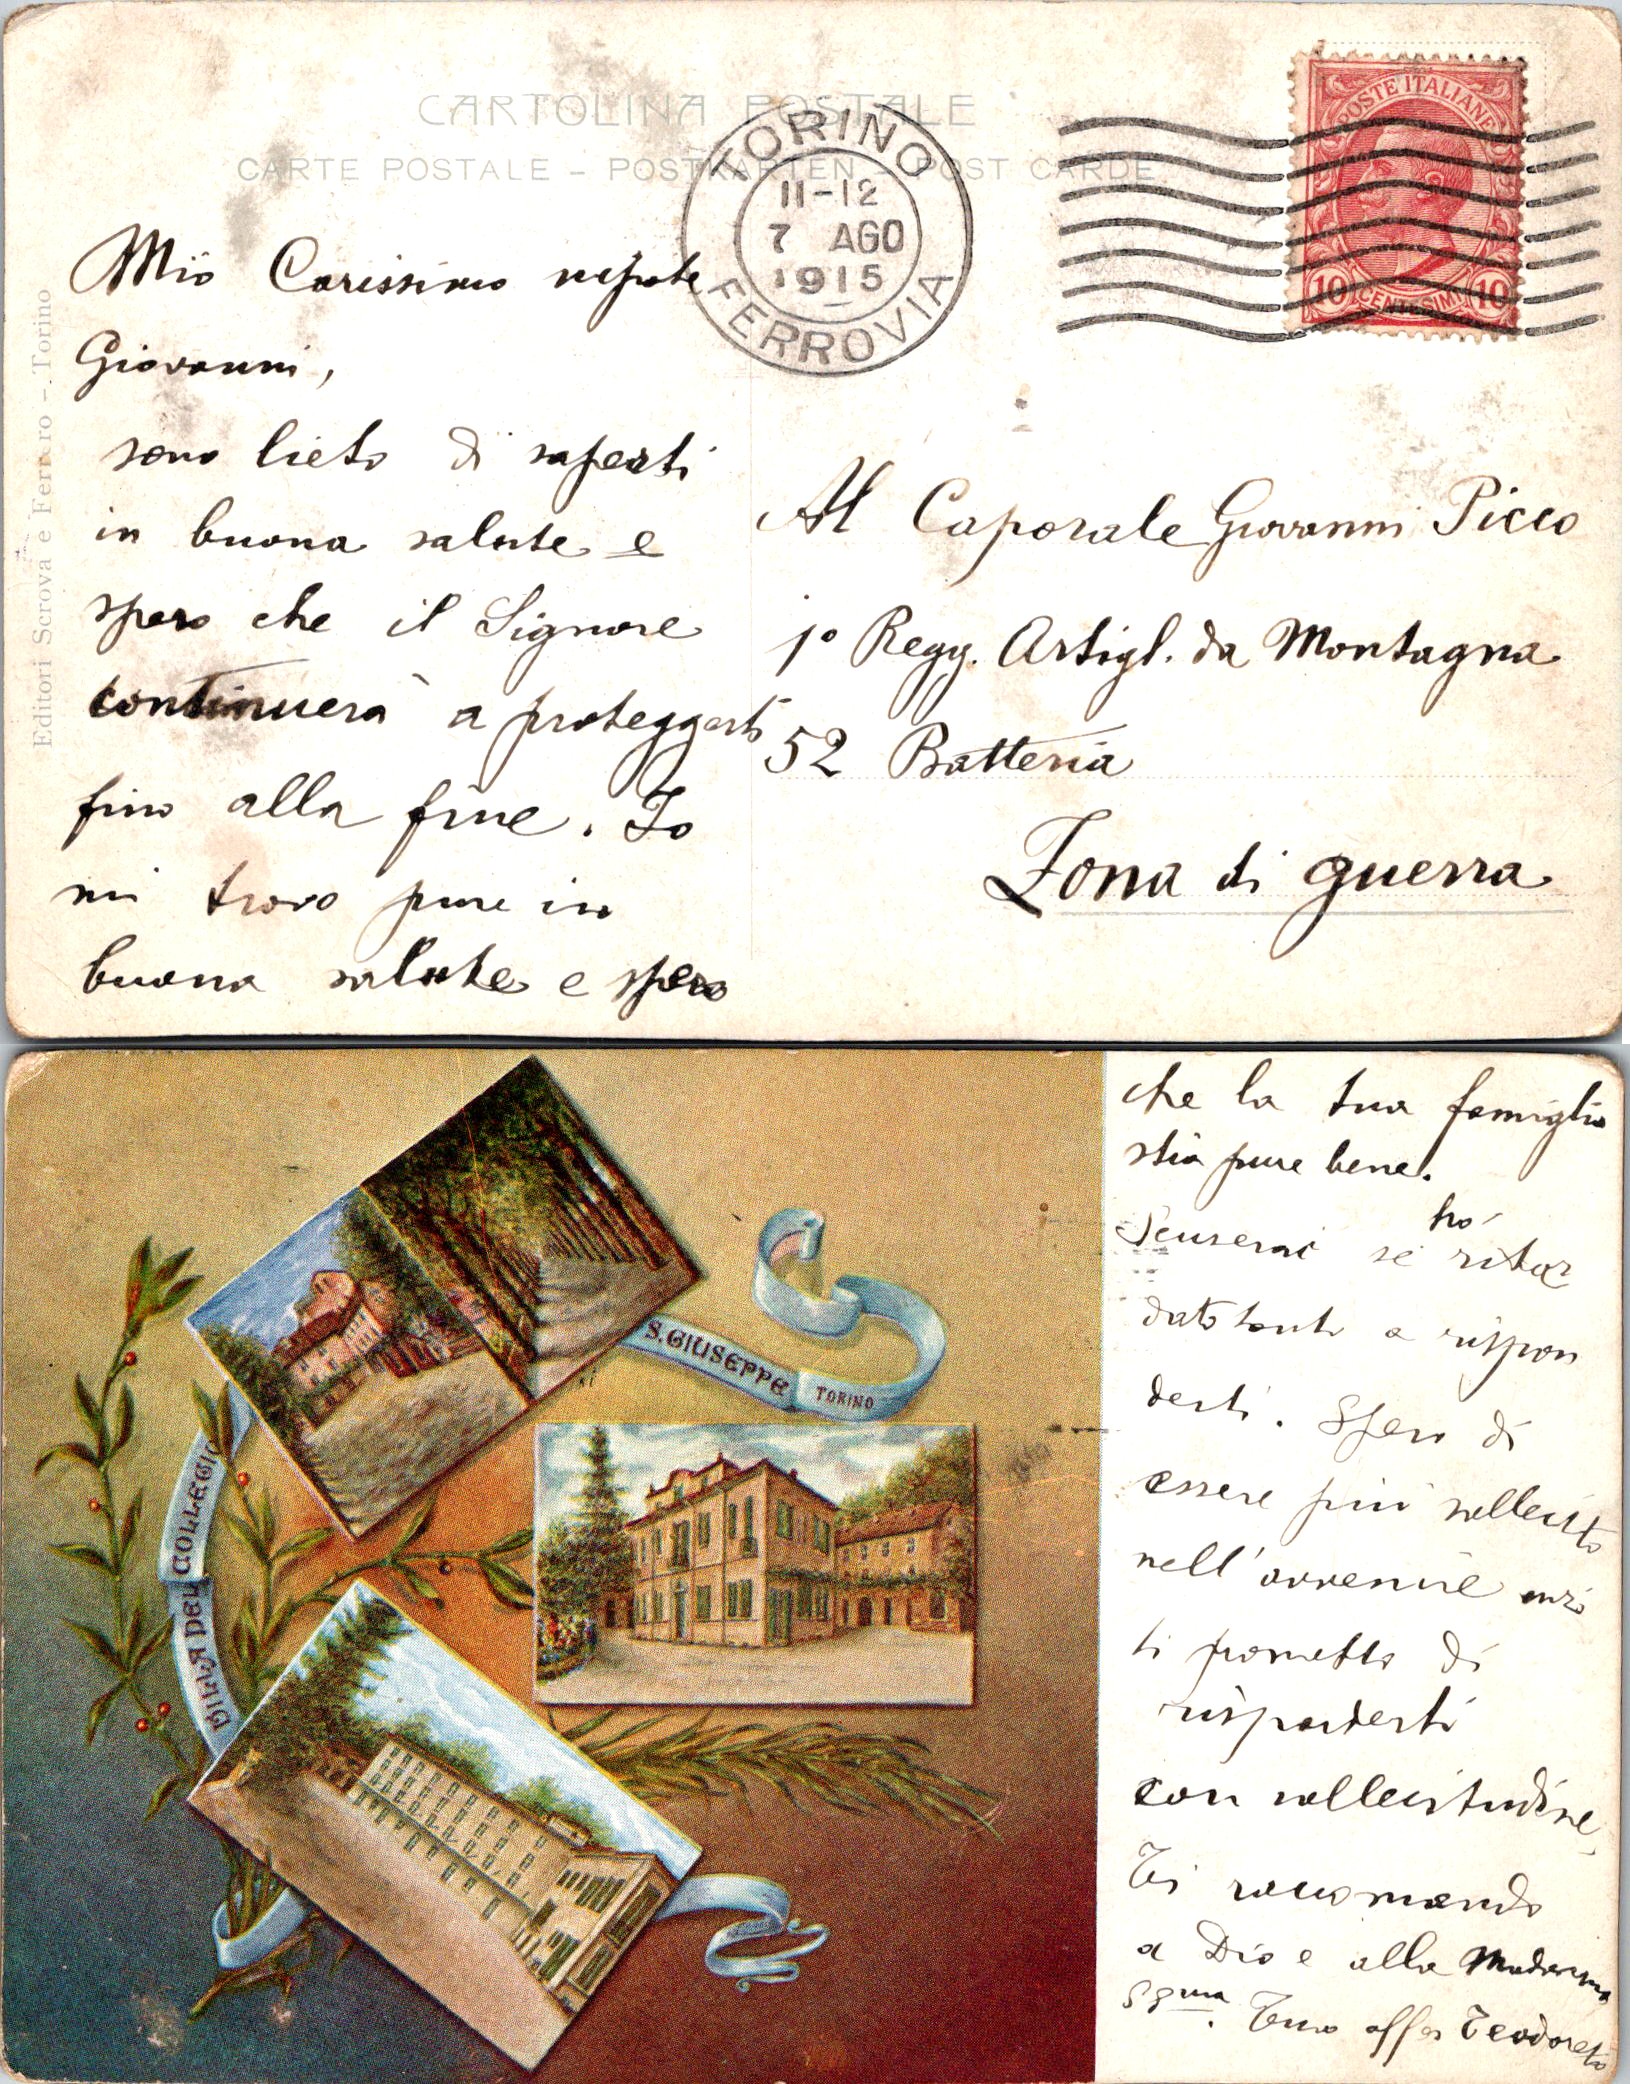 CARTOLINA POSTALE
CARTE POSTALE – POSTKARTEN – POST CARDE
TORINO
11-12
7 AGO
1915
FERROVIA
POSTE ITALIANE
10 CENTESIMI 10
Editori Scrova e Ferrero – Torino
Mio Carissimo nipote
Giovanni,
sono lieto di saperti
in buona salute e
spero che il Signore
continuerà a proteggerti
fino alla fine. Io
mi trovo pure in
buona salute e spero
Al Caporale Giovanni Picco
1º Regg. Artigl. da Montagna
52 Batteria
Zona di guerra
che la tua famiglia
stia pure bene.
Scuserai se ho ritar
dato tanto a rispon
derti. Spero di
essere più sollecito
nell'avvenire anzi
ti prometto di
risponderti
con sollecitudine.
Ti raccomando
a Dio e alla Madonna
SSma. Tuo affº Teodoreto
S. GIUSEPPE TORINO
VILLA DEL COLLEGIO